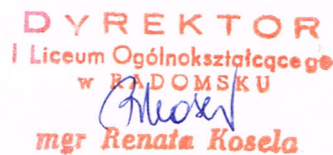 DYREKTOR
I Liceum Ogólnokształcącego
w RADOMSKU
mgr Renata Kosela